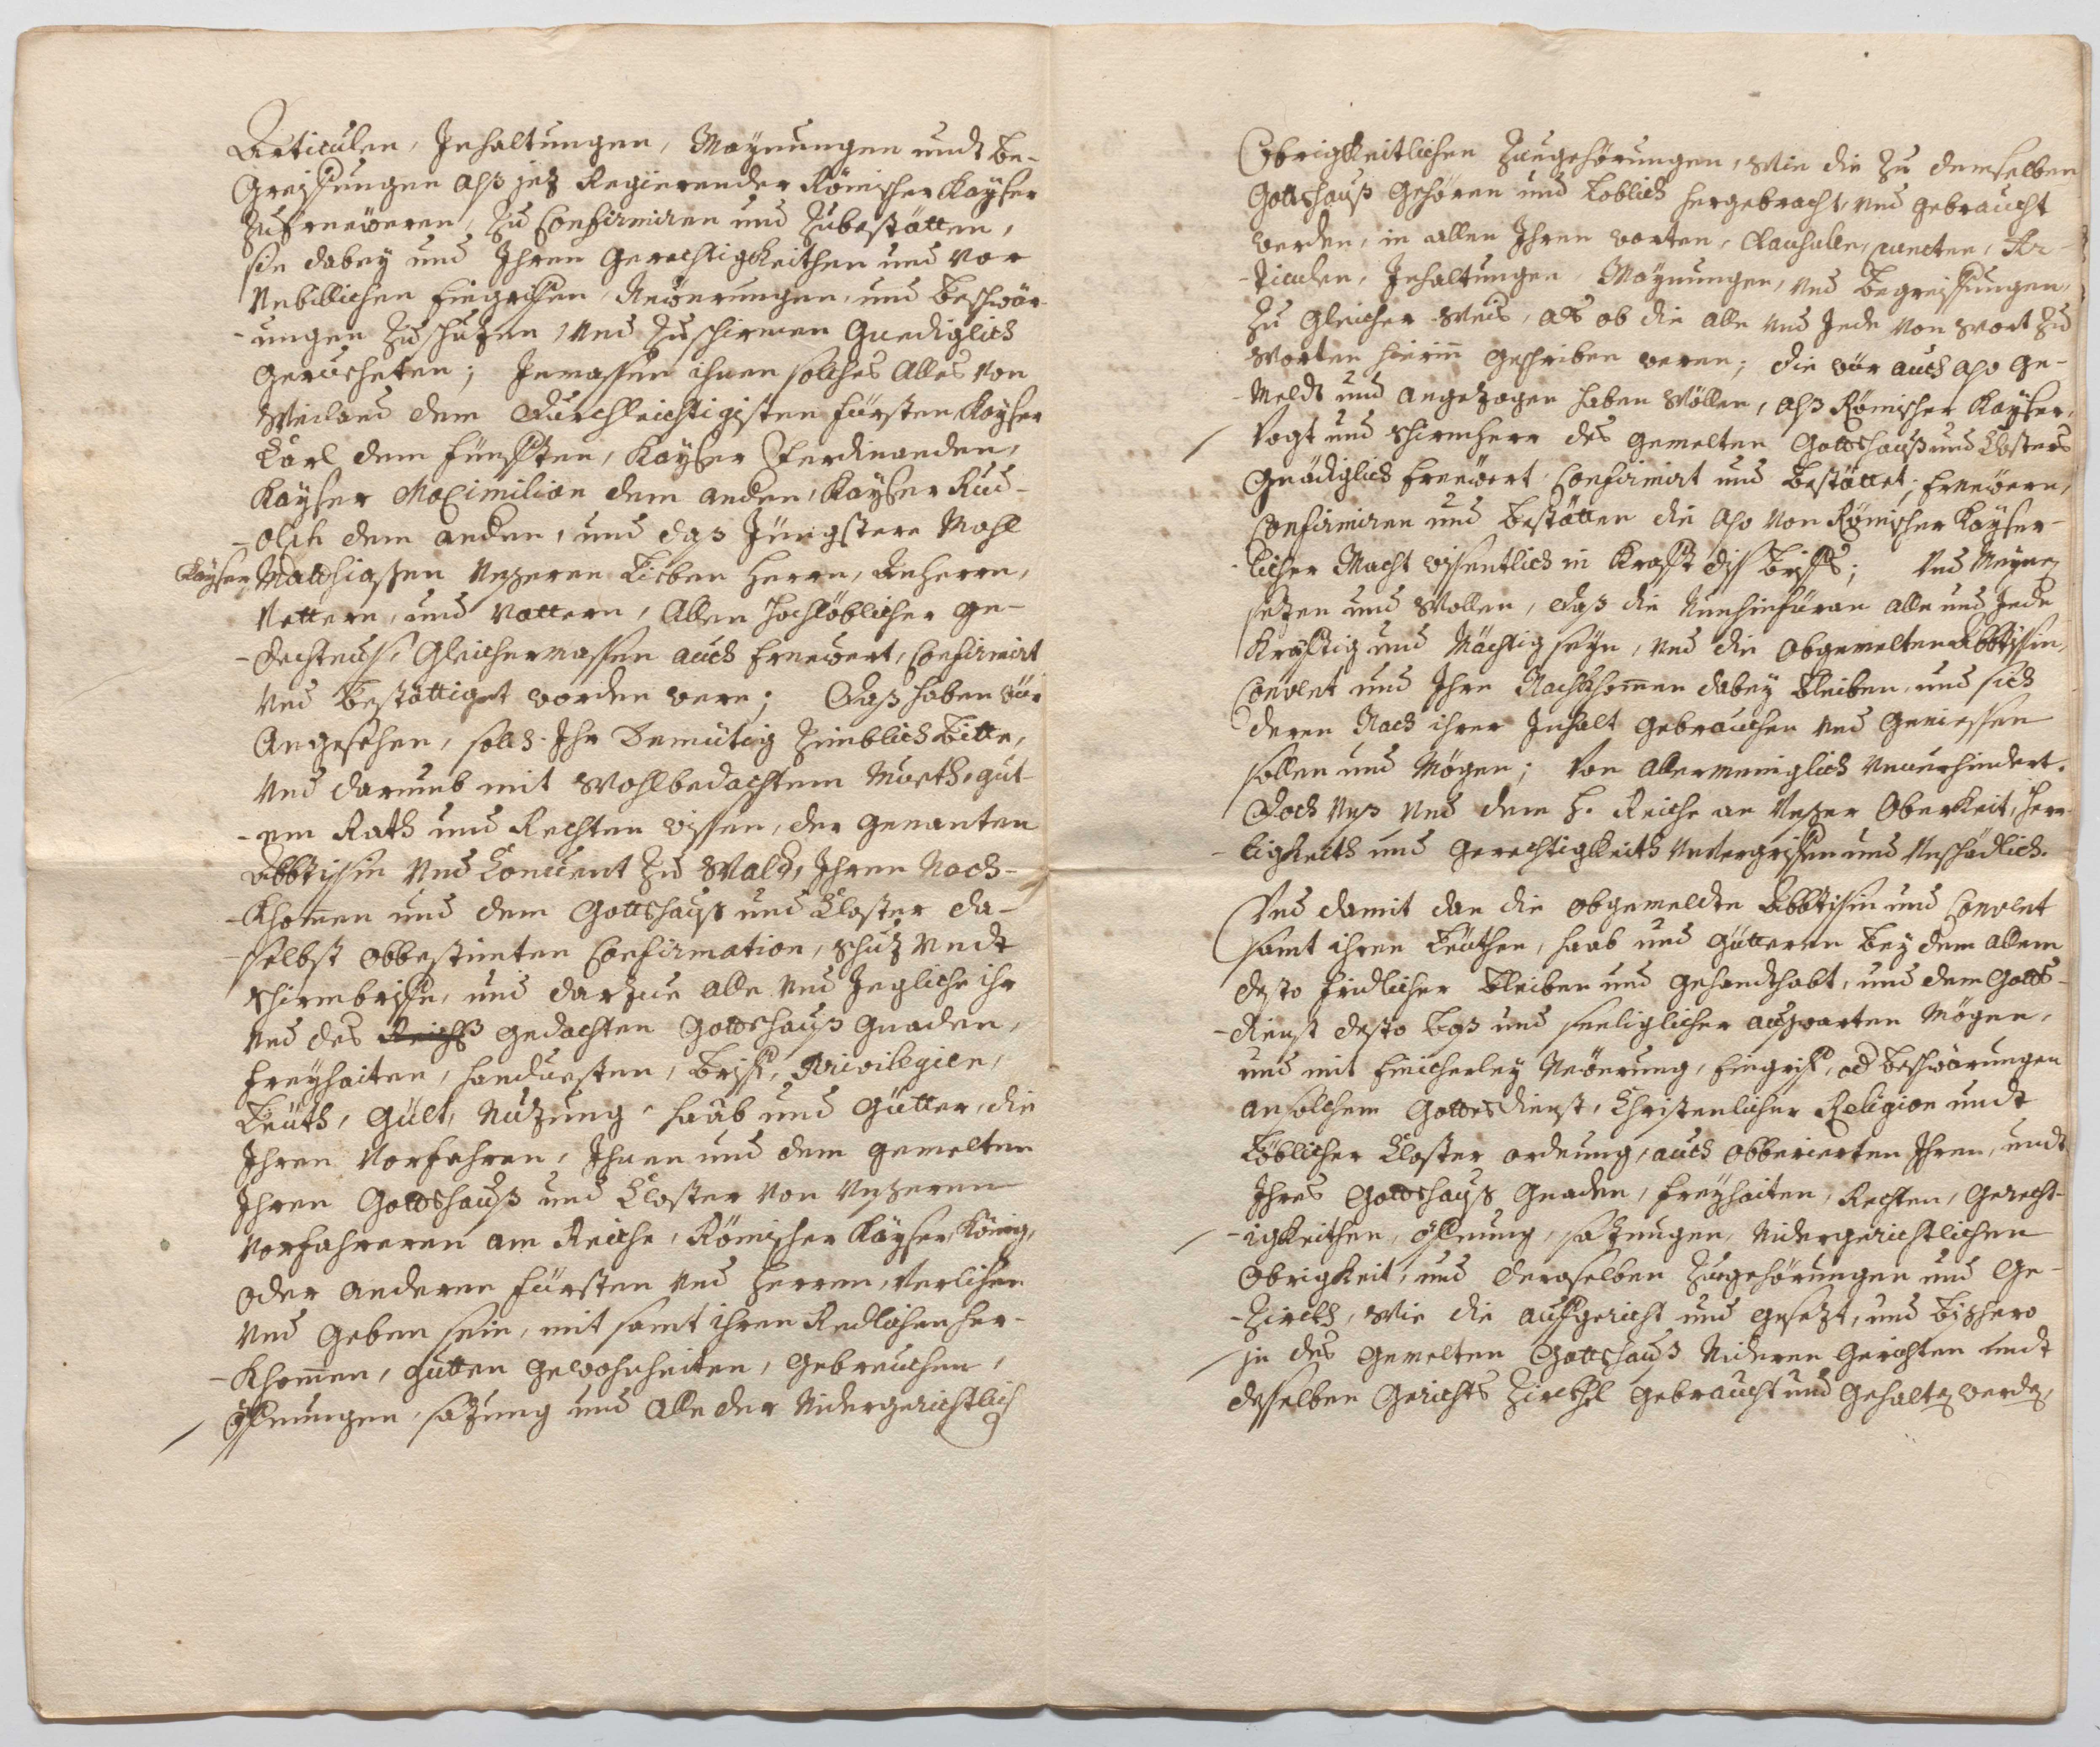 Articulen, Inhaltungen, Maynungen undt Be-
Greiffungen alß jez Regierender Römischer Kayser
Zuerneweren, Zu Confirmiren und Zubestätten,
sie dabey und Ihren Gerechtigkeithen und vor
Unbillichen Eingriffen, Newerungen, und Beschwär-
-ungen Zuschuzen, und Zuschirmen Gnediglich
Geruoheten; Inmassen ihnen solches Alles von
Weiland dem Durchleichtigisten Fürsten, Kayser
Carl dem Fünfften, Kayser Ferdinanden,
Kayser Maximilian dem anden, Kayser Rud-
-olph dem anden, und das Jüngstere Mahl
Kayser Matthiaßen Unßeren Lieben Herrn, Anherrn,
Vettern, und Vattern, Allen Hochlöblicher Ge-
-dechtnuß, Gleichermassen auch Ernewert, Confirmirt
und Bestättiget worden were; Daß haben wür
Angesehen, solch Ihr Demüetig Zimblich Bitte,
und darumb mit Wohlbedachtem Mueth, gut-
-em Rath und Rechten wissen, der Genanten
Abbtißin und Conuent Zu Wald, Ihren Nach-
-Khom̄en und dem Gottshauß und Closter da-
selbst obbestimten Confirmation, Schuz undt
Schirmbrieffe, und darzue alle und Jegliche ihr
und des Reichß gedachten Gottshauß Gnaden,
Freyhaiten, Handuesten, Brieff, Privilegien,
Leüth, Gült, Nuzung, Haab und Gütter, die
Ihren Vorfahren, Ihnen und dem gemelten
Ihren Gottshauß und Closter von Unßeren
Vorfahreren am Reiche, Römischer Kayser, König,
oder anderen Fürsten und Herren, Verlichen
und Geben sein, mit samt ihren Redlichen her-
-Khom̄en, gutten Gewohnheiten, Gebreuchen,
öffnungen, Sazung und Alle der Nidergerichtlich
Obrigkeitlichen Zuegehörungen, wie die Zu demselben
Gottshauß Gehören und Loblich hergebracht, und gebraucht
werden, in allen Ihren worten, Clausulen, puncten, Ar-
-ticulen, Inhaltungen, Maynungen, und Begreiffungen,
Zu Gleicher Weis, als ob die alle und Jede von Wort Zu
Worten hierin̄ geschriben weren; die wür auch also ge-
-meldt und angezogen haben Wöllen, alß Römischer Kayser,
Vogt und Schirmherr des gemelten Gottshauß und Closters
Gnädiglich Ernewert, Confirmirt und Bestättet; Ernewern,
Confirmiren und Bestätten die also von Römischer Kayser-
licher Macht wissentlich in Krafft diß Brieffs; und Meynen
sezen und Wollen, daß die Nunhinfüran alle und Jede
Kräfftig und Mächtig seyn, und die obgemelten Abbtissin,
Convent und Ihre Nachkhom̄en dabey Bleiben, und sich
deren Nach ihrer Inhalt gebrauchen und Geniessen
sollen und Mögen; Von allermeniglich Unuerhindert.
Doch Unß und dem H. Reiche an Unßer Oberkeit, Herr-
ligkeith und Gerechtigkeith Unvergriffen und Unschädlich.
Und damit dan die obgemeldte Abbtißin und Convent
samt ihren Leüthen, Haab und Gütteren Bey dem allem
desto fridlicher Bleiben und gehandthabt, und dem Gotts-
-dienst desto Baß und seeliglicher außwarten Mögen,
und mit Einicherley Newerung, Eingriff, od Beschwärungen
an solchem Gottesdienst, Christenlicher Religion undt
Löblicher Closter ordnung, auch obberierten Ihren, undt
Ihres Gottshauß Gnaden, Freyhaiten, Rechten, Gerecht-
-igkeithen, öffnung, sazungen, Nidergerichtlichen
Obrigkeit, und derselben Zuegehörungen und Ge-
-Zirckh, Wie die auffgericht und gesezt, und Bißhero
in des gemelten Gottshauß Nideren Gerichten undt
desselben Gerichts Zirckhel gebraucht und Gehalten werden,